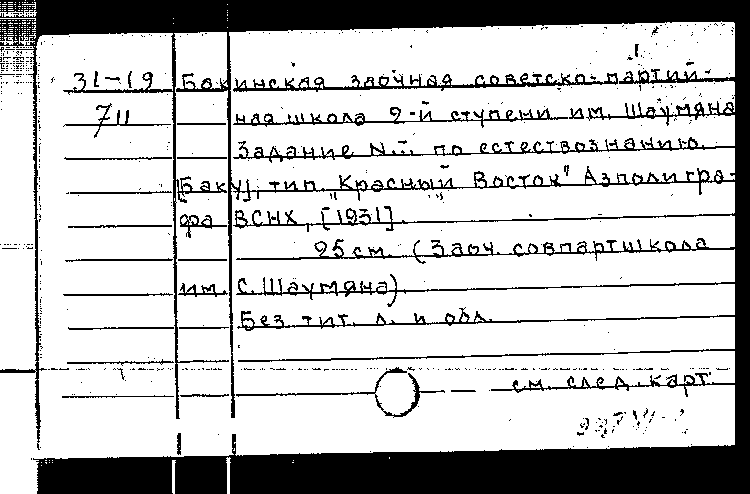 31-19 Бакинская заочная советско-партий-
711 ная школа 2-й ступени им. Шаумяна
Задание N.I. по естествознанию.
[Баку], тип. "Красный Восток" Азполигра-
фа ВСНХ, [1931].
25 см. (Заоч. совпартшкола
им. С. Шаумяна).
Без тит. л. и обл.
см. след. карт.